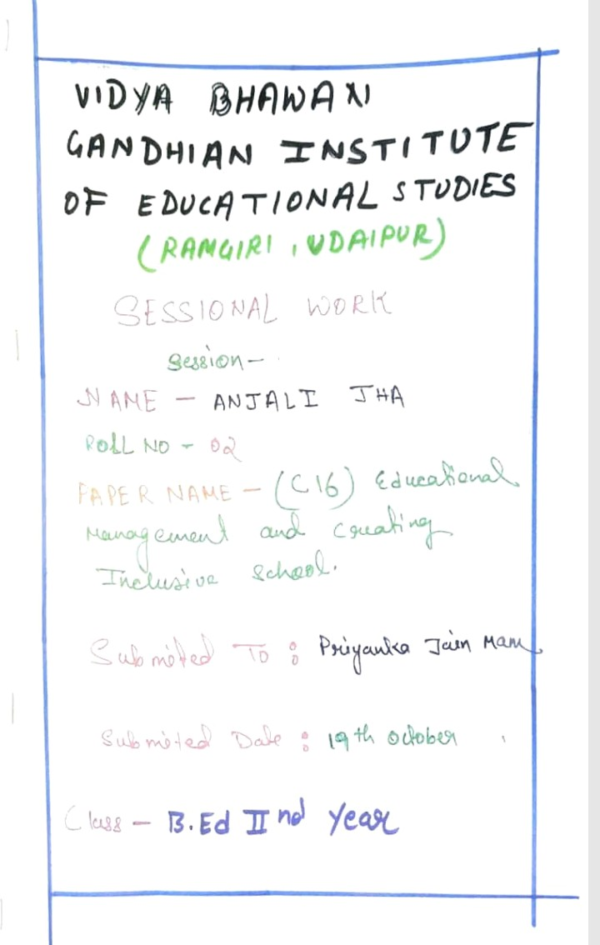 VIDYA BHAWAN
GANDHIAN INSTITUTE
OF EDUCATIONAL STUDIES
(RAMGIRI, UDAIPUR)
SESSIONAL WORK
Session-
NAME - ANJALI JHA
ROLL NO - 02
PAPER NAME - (C16) Educational
Management and Creating
Inclusive School.
Submited To : Priyanka Jain Mam
Submited Date : 19th October
Class - B.Ed IInd Year